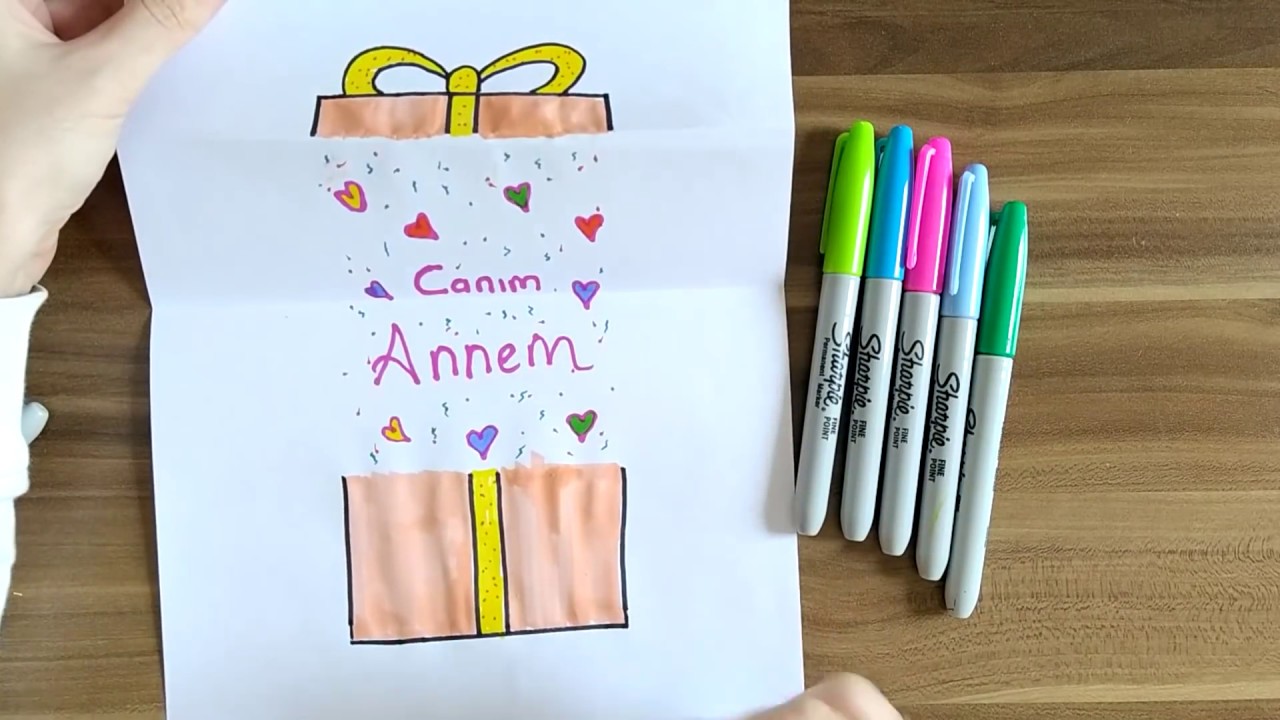 Canım
Annem
Sharpie. FINE POINT
Permanent Marker
Sharpie. FINE POINT
Sharpie. FINE POINT
Sharpie. FINE POINT